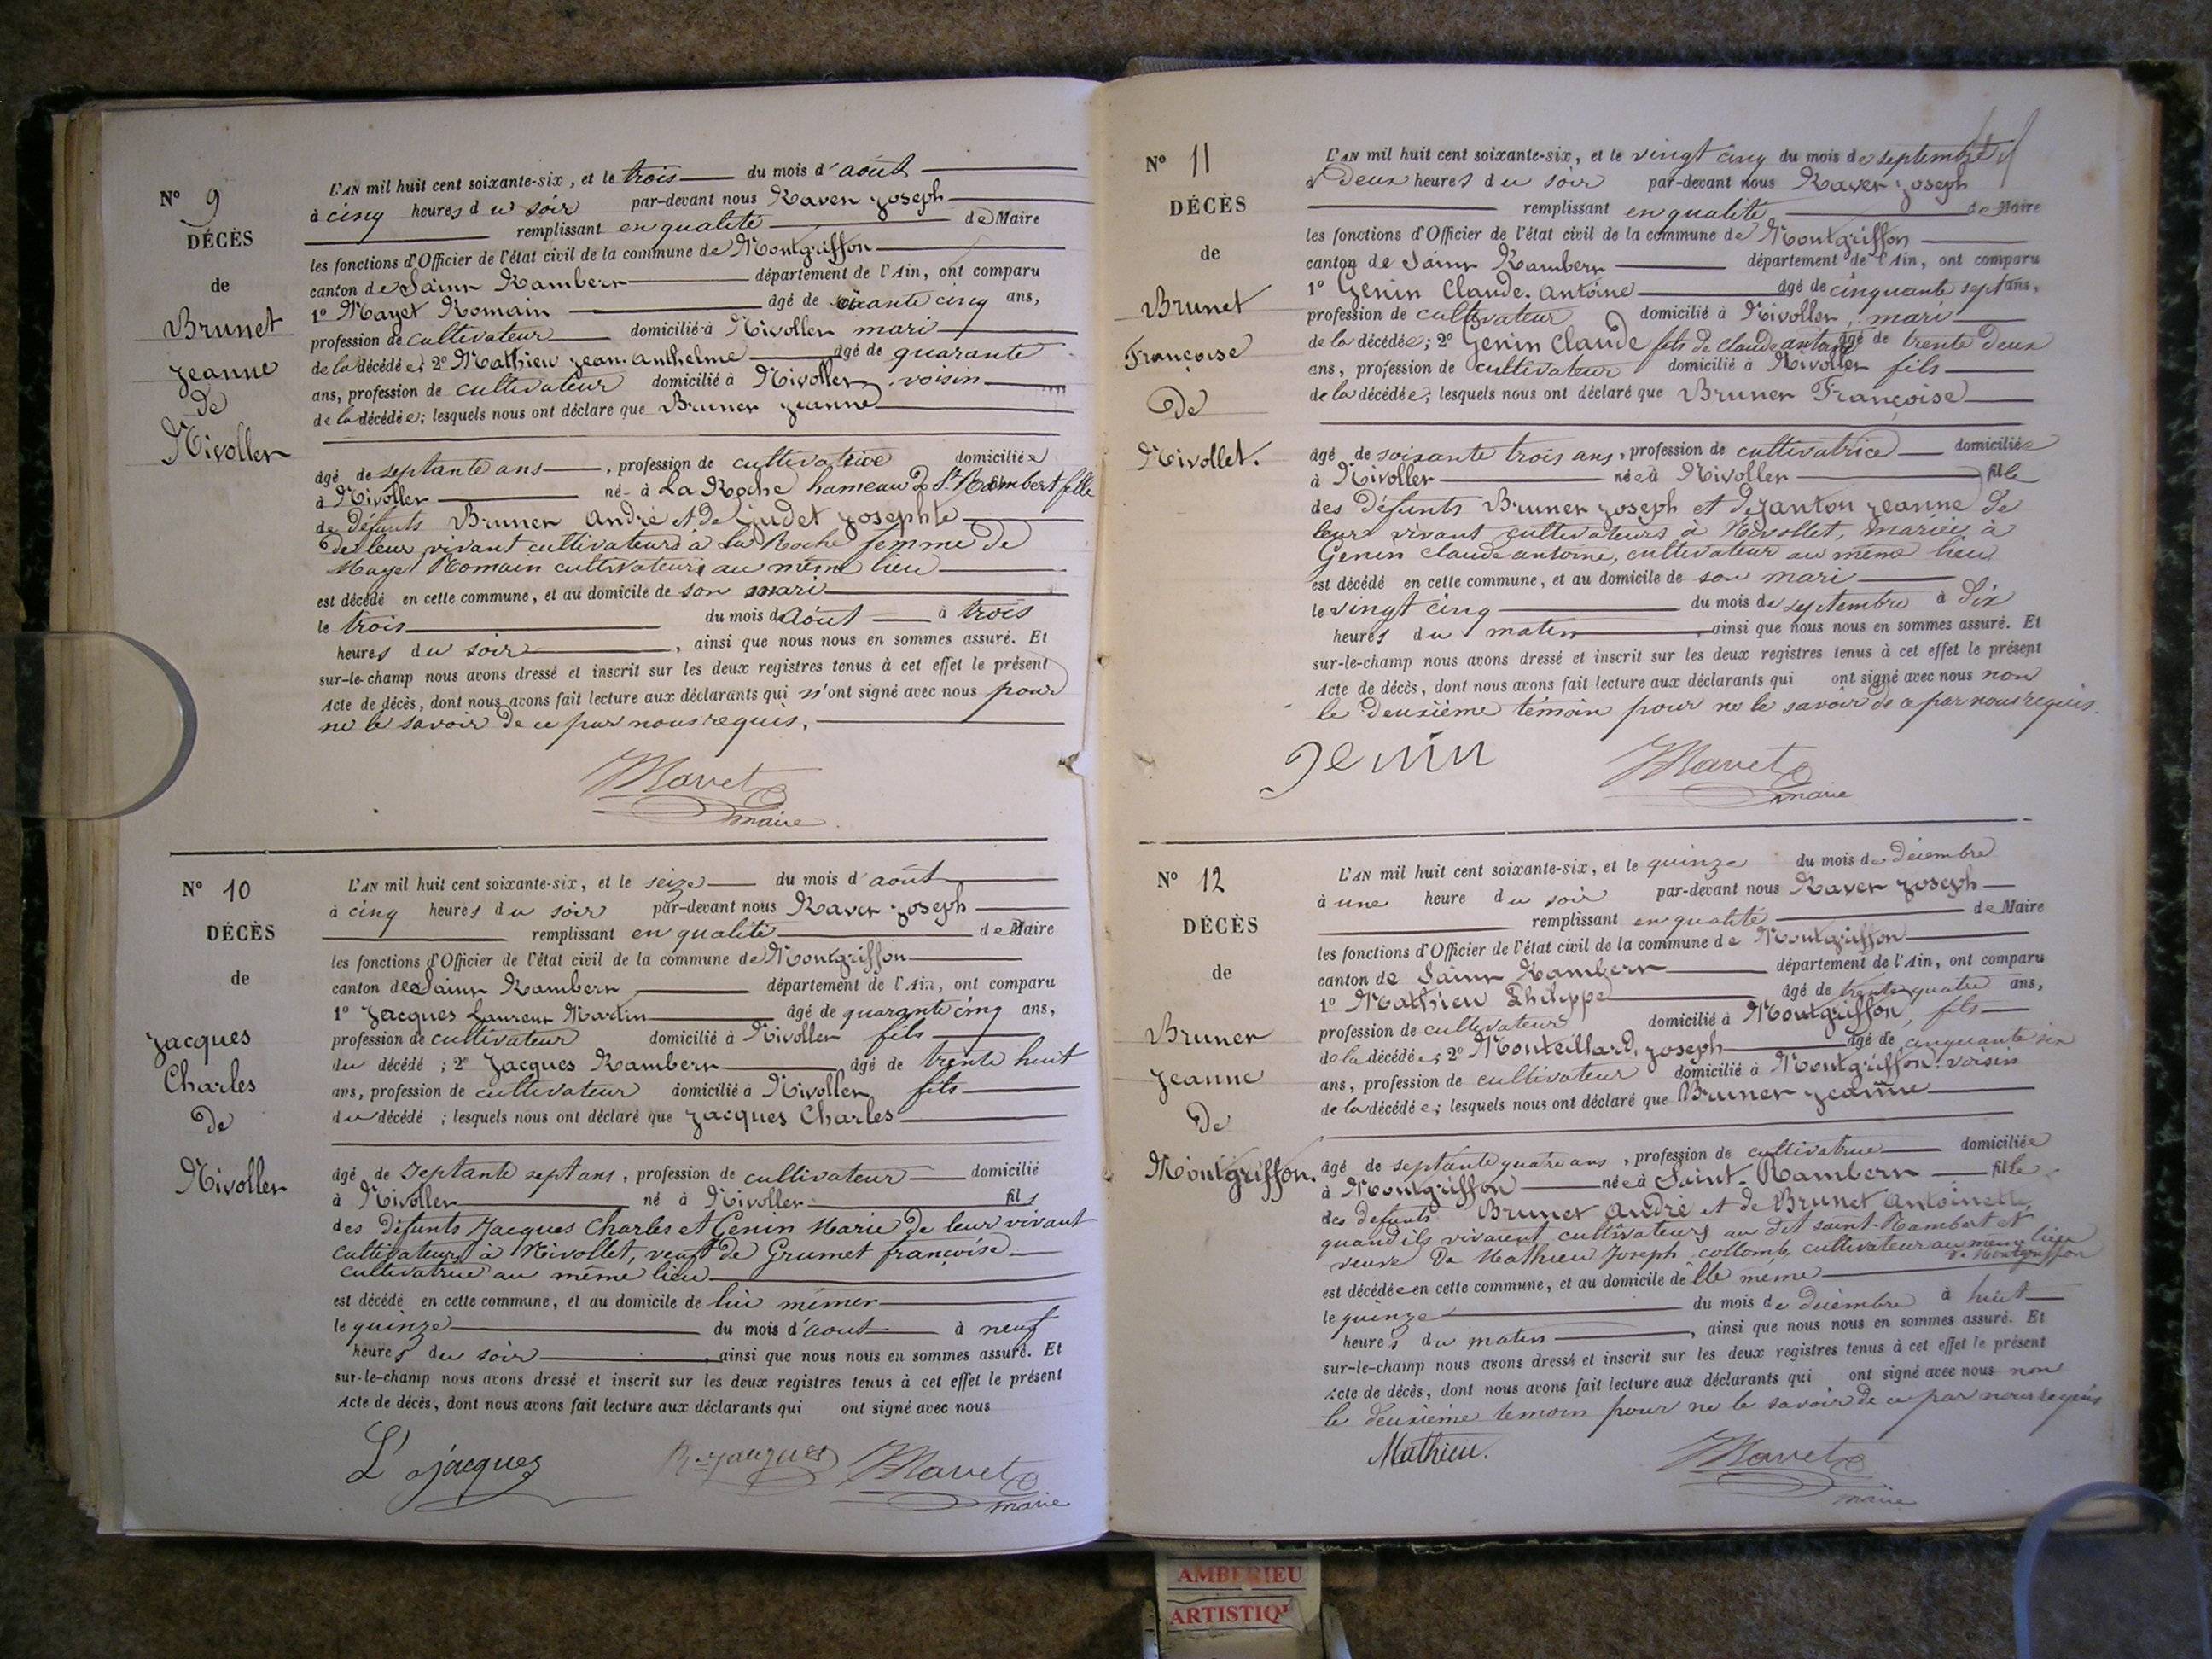 N° 9
DÉCÈS
de
Brunet
Jeanne
de
Nivollet
L'AN mil huit cent soixante-six, et le trois du mois d'août
à cinq heures du soir par-devant nous Ravet Joseph
remplissant en qualité de Maire
les fonctions d'Officier de l'état civil de la commune de Montgriffon
canton de Saint Rambert département de l'Ain, ont comparu
1° Mayet Romain âgé de soixante cinq ans,
profession de cultivateur domicilié à Nivollet mari
de la décédée; 2° Mathieu Jean-Anthelme âgé de quarante
ans, profession de cultivateur domicilié à Nivollet, voisin
de la décédée; lesquels nous ont déclaré que Brunet Jeanne
âgé de septante ans, profession de cultivatrice domiciliée
à Nivollet né à La Roche hameau de St Rambert fille
de défunts Brunet André et de Judet Josephte
de leur vivant cultivateurs à La Roche femme de
Mayet Romain cultivateurs au même lieu
est décédé en cette commune, et au domicile de son mari
le trois du mois d'août à trois
heures du soir, ainsi que nous nous en sommes assuré. Et
sur-le-champ nous avons dressé et inscrit sur les deux registres tenus à cet effet le présent
Acte de décès, dont nous avons fait lecture aux déclarants qui n'ont signé avec nous pour
ne le savoir de ce par nous requis.
Ravet
maire
N° 10
DÉCÈS
de
Jacques
Charles
de
Nivollet
L'AN mil huit cent soixante-six, et le seize du mois d'août
à cinq heures du soir par-devant nous Ravet Joseph
remplissant en qualité de Maire
les fonctions d'Officier de l'état civil de la commune de Montgriffon
canton de Saint Rambert département de l'Ain, ont comparu
1° Jacques Laurent Martin âgé de quarante cinq ans,
profession de cultivateur domicilié à Nivollet fils
du décédé; 2° Jacques Rambert âgé de trente huit
ans, profession de cultivateur domicilié à Nivollet fils
du décédé; lesquels nous ont déclaré que Jacques Charles
âgé de septante sept ans, profession de cultivateur domicilié
à Nivollet né à Nivollet fils
des défunts Jacques Charles et Genin Marie de leur vivant
cultivateurs à Nivollet, veuf de Grumet françoise
cultivatrice au même lieu
est décédé en cette commune, et au domicile de lui même
le quinze du mois d'août à neuf
heures du soir, ainsi que nous nous en sommes assuré. Et
sur-le-champ nous avons dressé et inscrit sur les deux registres tenus à cet effet le présent
Acte de décès, dont nous avons fait lecture aux déclarants qui ont signé avec nous
L. jacques R. jacques Ravet
maire
N° 11
DÉCÈS
de
Brunet
Françoise
de
Nivollet.
L'AN mil huit cent soixante-six, et le vingt cinq du mois de septembre
à deux heures du soir par-devant nous Ravet Joseph
remplissant en qualité de Maire
les fonctions d'Officier de l'état civil de la commune de Montgriffon
canton de Saint Rambert département de l'Ain, ont comparu
1° Genin Claude. Antoine âgé de cinquante sept ans,
profession de cultivateur domicilié à Nivollet, mari
de la décédée; 2° Genin Claude fils de Claude antoine âgé de trente deux
ans, profession de cultivateur domicilié à Nivollet fils
de la décédée; lesquels nous ont déclaré que Brunet Françoise
âgé de soixante trois ans, profession de cultivatrice domiciliée
à Nivollet née à Nivollet fille
des défunts Brunet Joseph et de Janton Jeanne de
leur vivant cultivateurs à Nivollet, mariée à
Genin Claude antoine, cultivateur au même lieu
est décédé en cette commune, et au domicile de son mari
le vingt cinq du mois de septembre à six
heures du matin, ainsi que nous nous en sommes assuré. Et
sur-le-champ nous avons dressé et inscrit sur les deux registres tenus à cet effet le présent
Acte de décès, dont nous avons fait lecture aux déclarants qui ont signé avec nous non
le deuxième témoin pour ne le savoir de ce par nous requis.
Jenin Ravet
maire
N° 12
DÉCÈS
de
Brunet
Jeanne
De
Montgriffon.
L'AN mil huit cent soixante-six, et le quinze du mois de décembre
à une heure du soir par-devant nous Ravet Joseph
remplissant en qualité de Maire
les fonctions d'Officier de l'état civil de la commune de Montgriffon
canton de Saint Rambert département de l'Ain, ont comparu
1° Mathieu Philippe âgé de trente quatre ans,
profession de cultivateur domicilié à Montgriffon, fils
de la décédée; 2° Monteillard, Joseph âgé de cinquante six
ans, profession de cultivateur domicilié à Montgriffon voisin
de la décédée; lesquels nous ont déclaré que Brunet Jeanne
âgé de septante quatre ans, profession de cultivatrice domiciliée
à Montgriffon née à Saint-Rambert fille
des défunts Brunet André et de Brunet Antoinette,
quand ils vivaient cultivateurs au dit saint-Rambert et
veuve de Mathieu Joseph collomb, cultivateur au même lieu
de Montgriffon
est décédée en cette commune, et au domicile d'elle même
le quinze du mois de décembre à huit
heures du matin, ainsi que nous nous en sommes assuré. Et
sur-le-champ nous avons dressé et inscrit sur les deux registres tenus à cet effet le présent
Acte de décès, dont nous avons fait lecture aux déclarants qui ont signé avec nous non
le deuxième temoin pour ne le savoir de ce par nous requis
Mathieu. Ravet
maire
AMBERIEU
ARTISTIQ